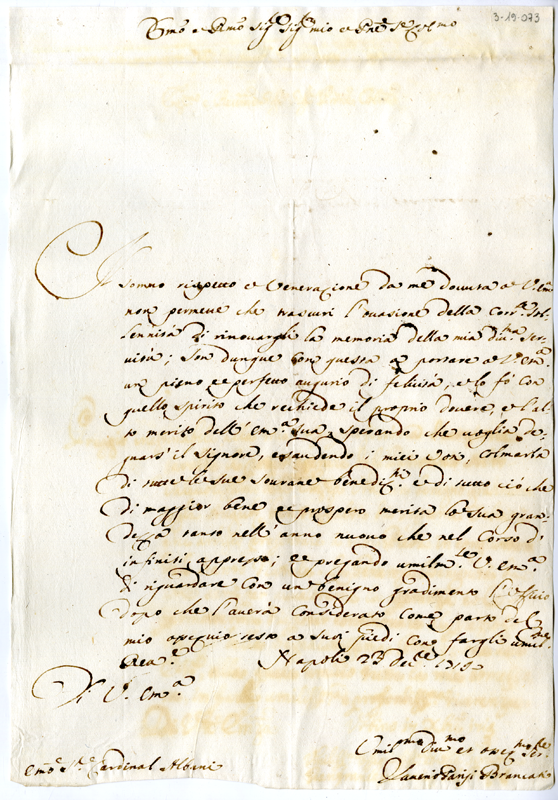 3-19-073
Em̃o e Rm̃o Sig.r Sig.r mio e Pñe Col.mo
Il sommo rispetto e Venerazione da me dovuta a V. Em.
non permette che trascuri l'occasione della corr.te Sol
lennità di rinovargli la memoria della mia div.ma Ser
vitù; Son dunque con questa a portare a V. Em.a
un pieno e perfetto augurio di felicità, e lo fò con
quello spirito che rechiede il proprio dovere, e l'al
to merito dell'Em.a Sua, sperando che voglia de
gnars'il Signore, esaudendo i miei voti, colmarla
di tutte le sue sourane benediz.ni e di tutto ciò che
di maggior bene e prospero merita la sua gran
dezza tanto nell'anno nuovo che nel Corso d'
infiniti appresso; e pregando umilm.te V. Em.a
di riguardare con un benigno gradimento l'officio
dopo che l'averà considerato come parte del
mio ossequio resto a suoi piedi con fargli umil.ma
Rev.a Napoli 23 Dec.re
Di V. Em.a
Umil.mo Div.mo et osseq.mo Ser.
Parisi Brancac
Em̃o Sr. Cardinal Albani